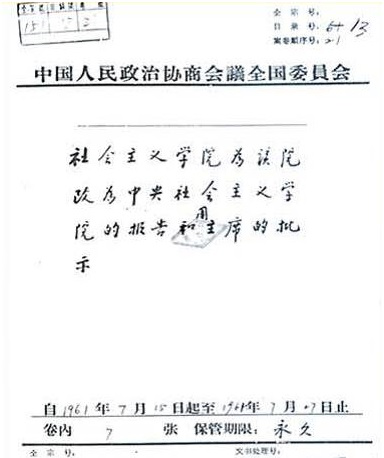 全宗号:
目录号: 6-13
案卷顺序号: 21
中国人民政治协商会議全国委員会
社会主义学院為該院
改为中央社会主义学
院的报告和周主席的批
示
自1961年7月15日起至1961年7月27日止
卷內 7 张 保管期限: 永久
全宗号: 文书处理号: